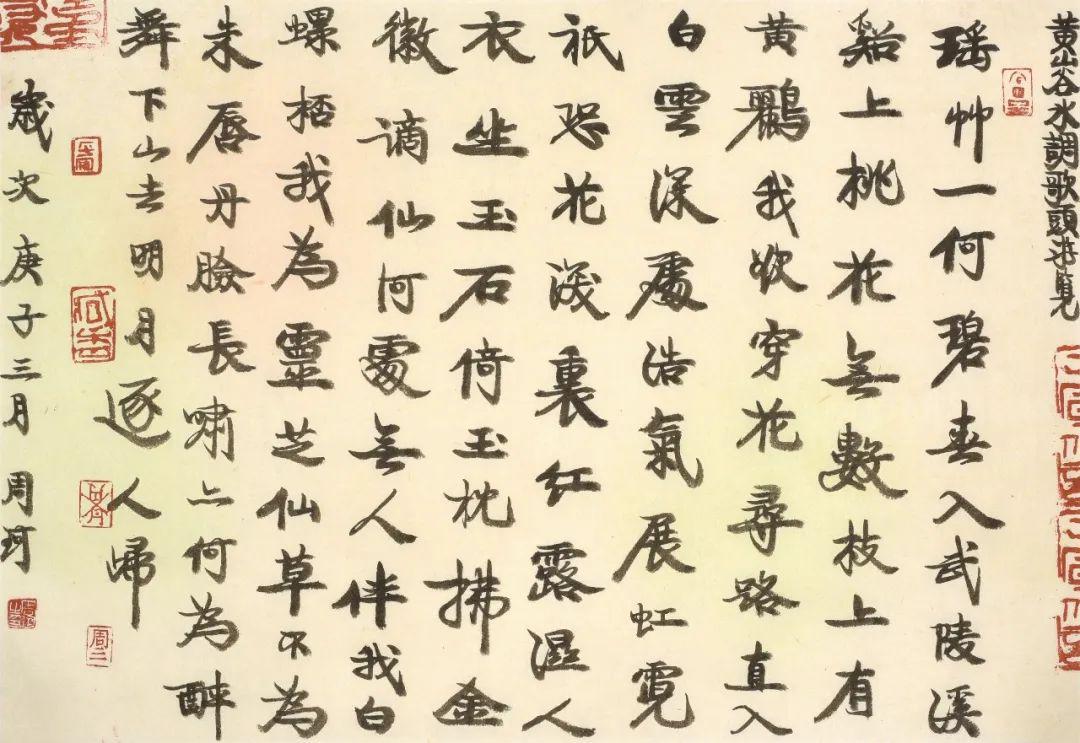 黄山谷水調歌頭游覽
瑶艸一何碧春入武陵溪
谿上桃花無數枝上有
黄鸝我欲穿花尋路直入
白雲深處浩氣展虹霓
祇恐花深裏紅露濕人
衣坐玉石倚玉枕拂金
徽謫仙何處無人伴我白
螺桮我為靈芝仙草不為
朱唇丹臉長嘯亦何為醉
舞下山去明月逐人歸
歲次庚子三月周珂
周二